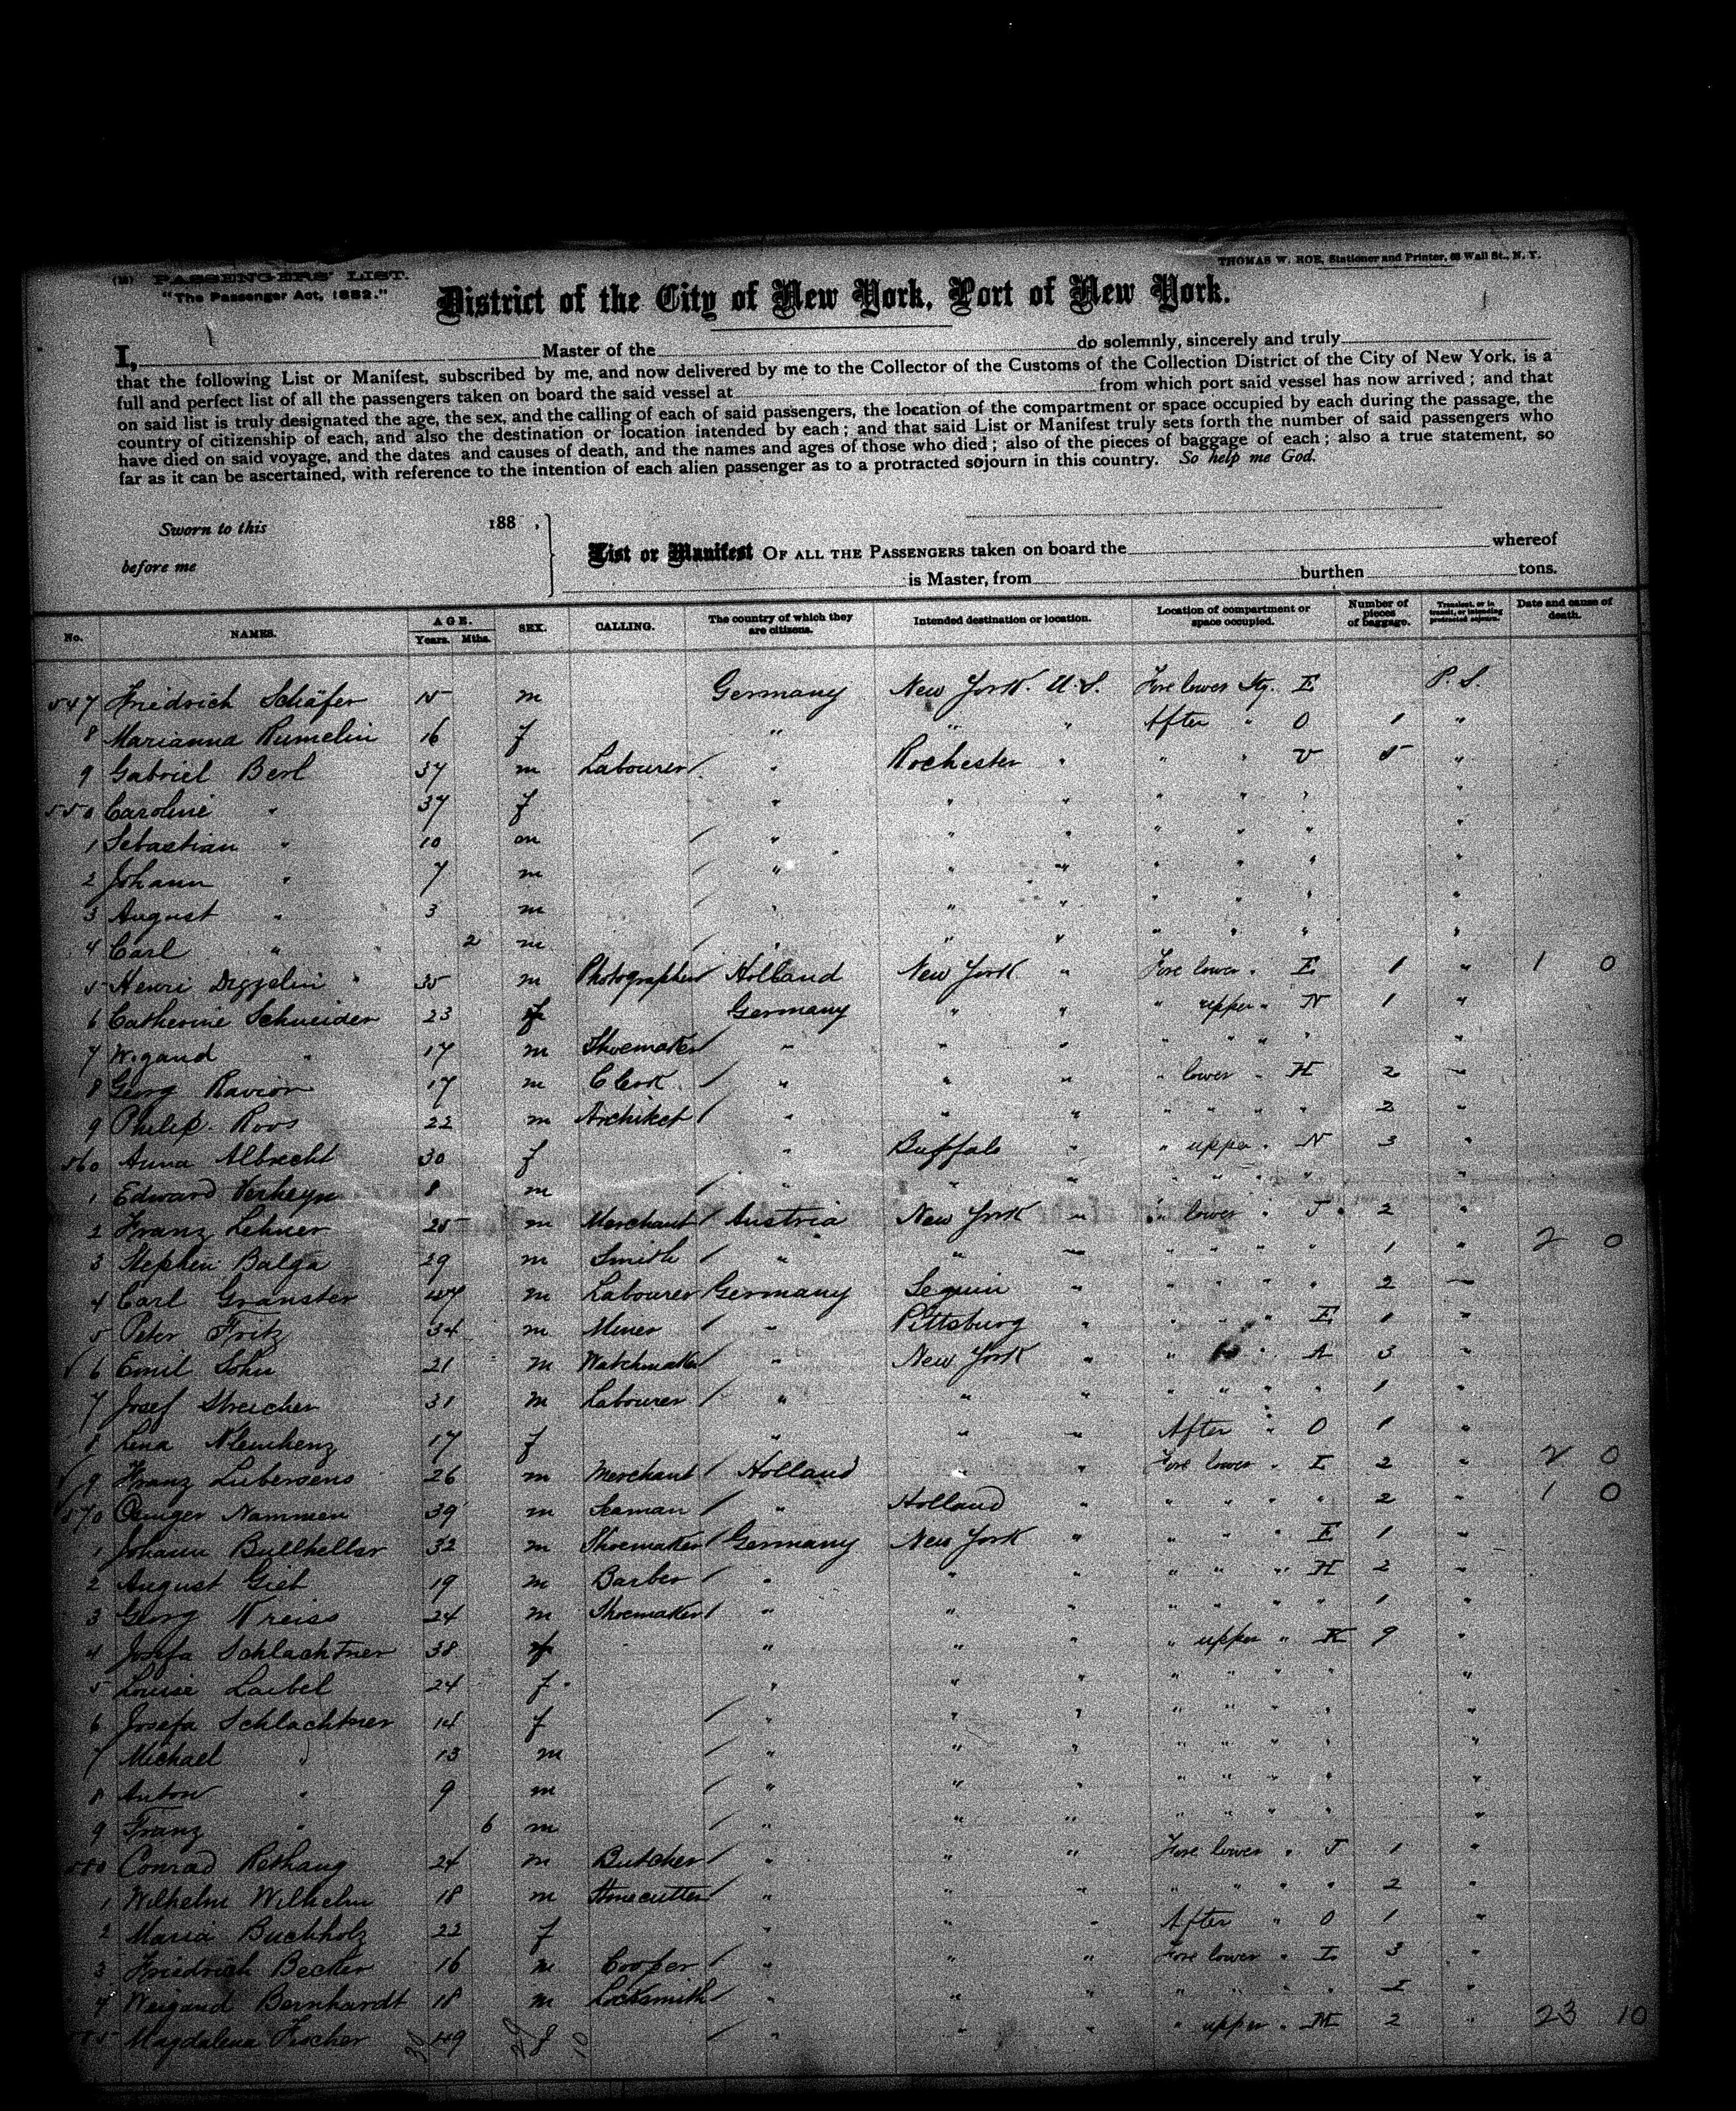 (M) PASSENGERS' LIST.
"The Passenger Act, 1882."
THOMAS W. ROE, Stationer and Printer, Wall St., N. Y.
District of the City of New York, Port of New York.
I, Master of the do solemnly, sincerely and truly
that the following List or Manifest, subscribed by me, and now delivered by me to the Collector of the Customs of the Collection District of the City of New York, is a
full and perfect list of all the passengers taken on board the said vessel at from which port said vessel has now arrived; and that
on said list is truly designated the age, the sex, and the calling of each of said passengers, the location of the compartment or space occupied by each during the passage, the
country of citizenship of each, and also the destination or location intended by each; and that said List or Manifest truly sets forth the number of said passengers who
have died on said voyage, and the dates and causes of death, and the names and ages of those who died; also of the pieces of baggage of each; also a true statement, so
far as it can be ascertained, with reference to the intention of each alien passenger as to a protracted sojourn in this country. So help me God.
Sworn to this 188 .
before me
List or Manifest OF ALL THE PASSENGERS taken on board the whereof
is Master, from burthen tons.
No. NAMES. AGE. Years. Mths. SEX. CALLING. The country of which they are citizens. Intended destination or location. Location of compartment or space occupied. Number of pieces of baggage. Transient, or in transit, or intending protracted sojourn. Date and cause of death.
547 Friedrich Schäfer 15 m Germany New York. U.S. Fore lower Stg. E P.S.
8 Marianna Rumelin 16 f " " " After " O 1 "
9 Gabriel Berl 37 m Labourer " Rochester " " " V 5 "
550 Caroline " 37 f " " " " " " "
1 Sebastian " 10 m " " " " " " "
2 Johann " 7 m " " " " " " "
3 August " 3 m " " " " " " "
4 Carl " 2 m " " " " " " "
5 Henri 35 m Photographer Holland New York " Fore lower " E 1 " 1 0
6 Catherine Schneider 23 f Germany " " " upper " N 1 "
7 Wigand " 17 m Shoemaker " " " " " " " "
8 Georg Ravior 17 m Clerk " " " " lower " H 2 "
9 Philip Roos 22 m Architect " " " " " " " 2 "
560 Anna Albrecht 30 f " Buffalo " " upper " N 3 "
1 Edward Verheyn 8 m " " " " " " " "
2 Franz Lehner 25 m Merchant Austria New York " " lower " J 2 "
3 Stephen Balga 29 m Smith " " " " " " " 1 " 2 0
4 Carl Granster 47 m Labourer Germany Seguin " " " " " 2 "
5 Peter Fritz 34 m Miner " Pittsburg " " " " E 1 "
6 Emil Sohn 21 m Watchmaker " New York " " " A 3 "
7 Josef Streicher 31 m Labourer " " " " " " " 1 "
8 Lena Klemhenz 17 f " " " After " O 1 "
9 Franz Lubersens 26 m Merchant Holland " " Fore lower " I 2 " 2 0
570 Nammen 39 m Seaman " Holland " " " " " 2 " 1 0
1 Johann Bullheller 32 m Shoemaker Germany New York " " " " E 1 "
2 August Gieb 19 m Barber " " " " " " H 2 "
3 Georg Kreiss 24 m Shoemaker " " " " " " " 1 "
4 Josefa Schlachtner 38 f " " " " upper " K 9 "
5 Louise Laibel 24 f " " " " " " " "
6 Josefa Schlachtner 14 f " " " " " " " "
7 Michael " 13 m " " " " " " " "
8 Anton " 9 m " " " " " " "
9 Franz " 6 m " " " " " " " "
580 Conrad Rethaug 24 m Butcher " " " Fore lower " J 1 "
1 Wilhelm Wilhelm 18 m Stonecutter " " " " " " " 2 "
2 Maria Buchholz 22 f " " " After " O 1 "
3 Friedrich Becker 16 m Cooper " " " Fore lower " I 3 "
4 Weigand Bernhardt 18 m Locksmith " " " " " " " "
5 Magdalena Fischer 49 f " " " " upper " M 2 " 23 10